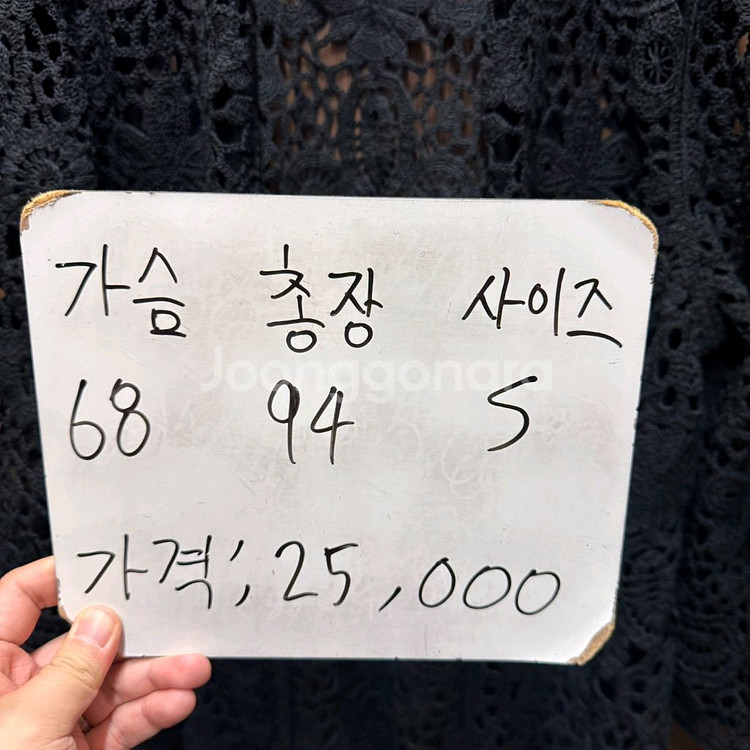 가슴 총장 사이즈
Joonggonara
68 94 S
가격; 25,000